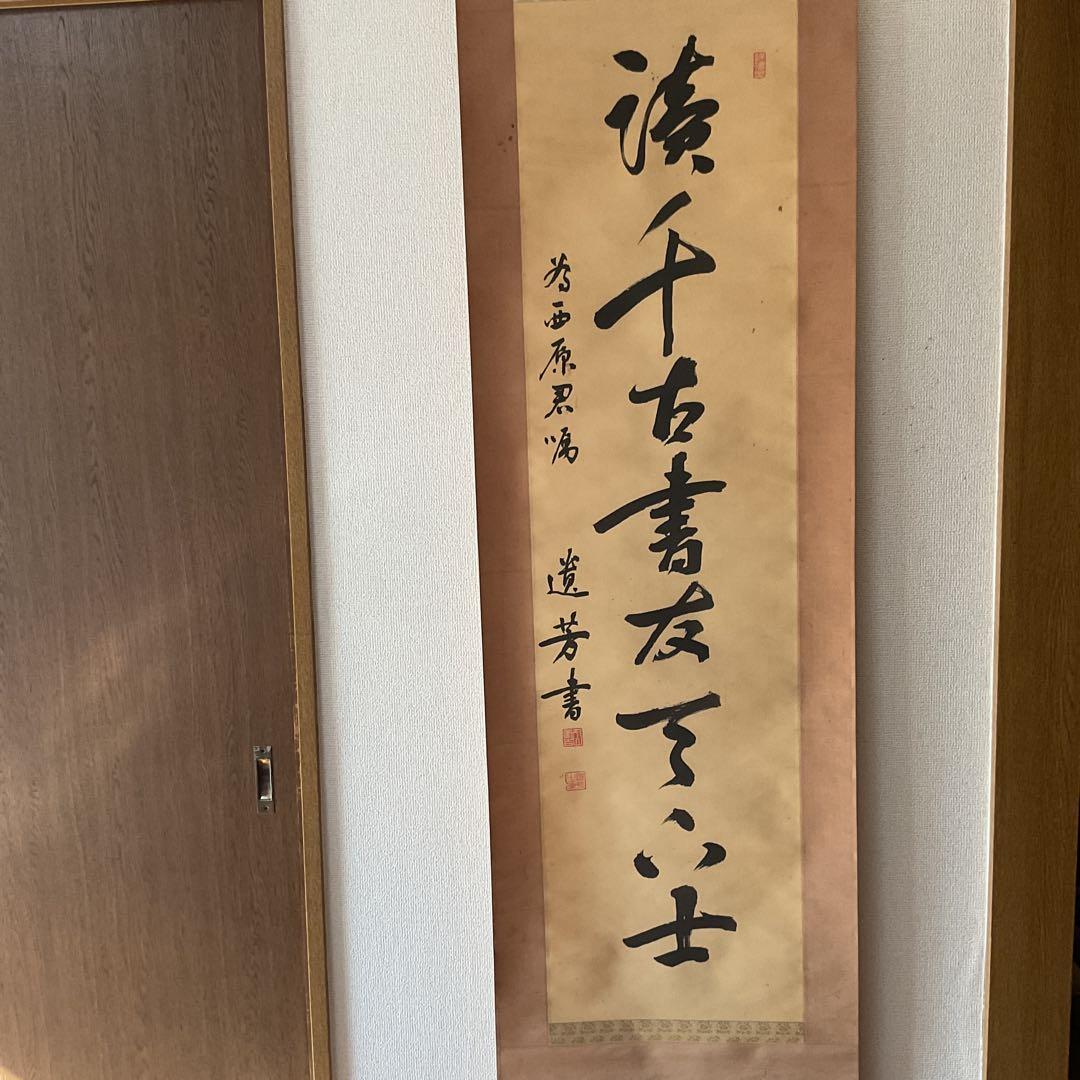 讀千古書友天下士
為西原君嘱
遺芳書